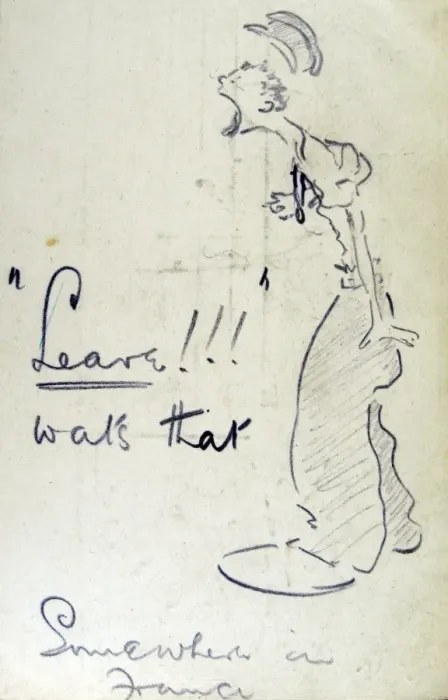 "Leave!!!"
wat's that
Somewhere in
France